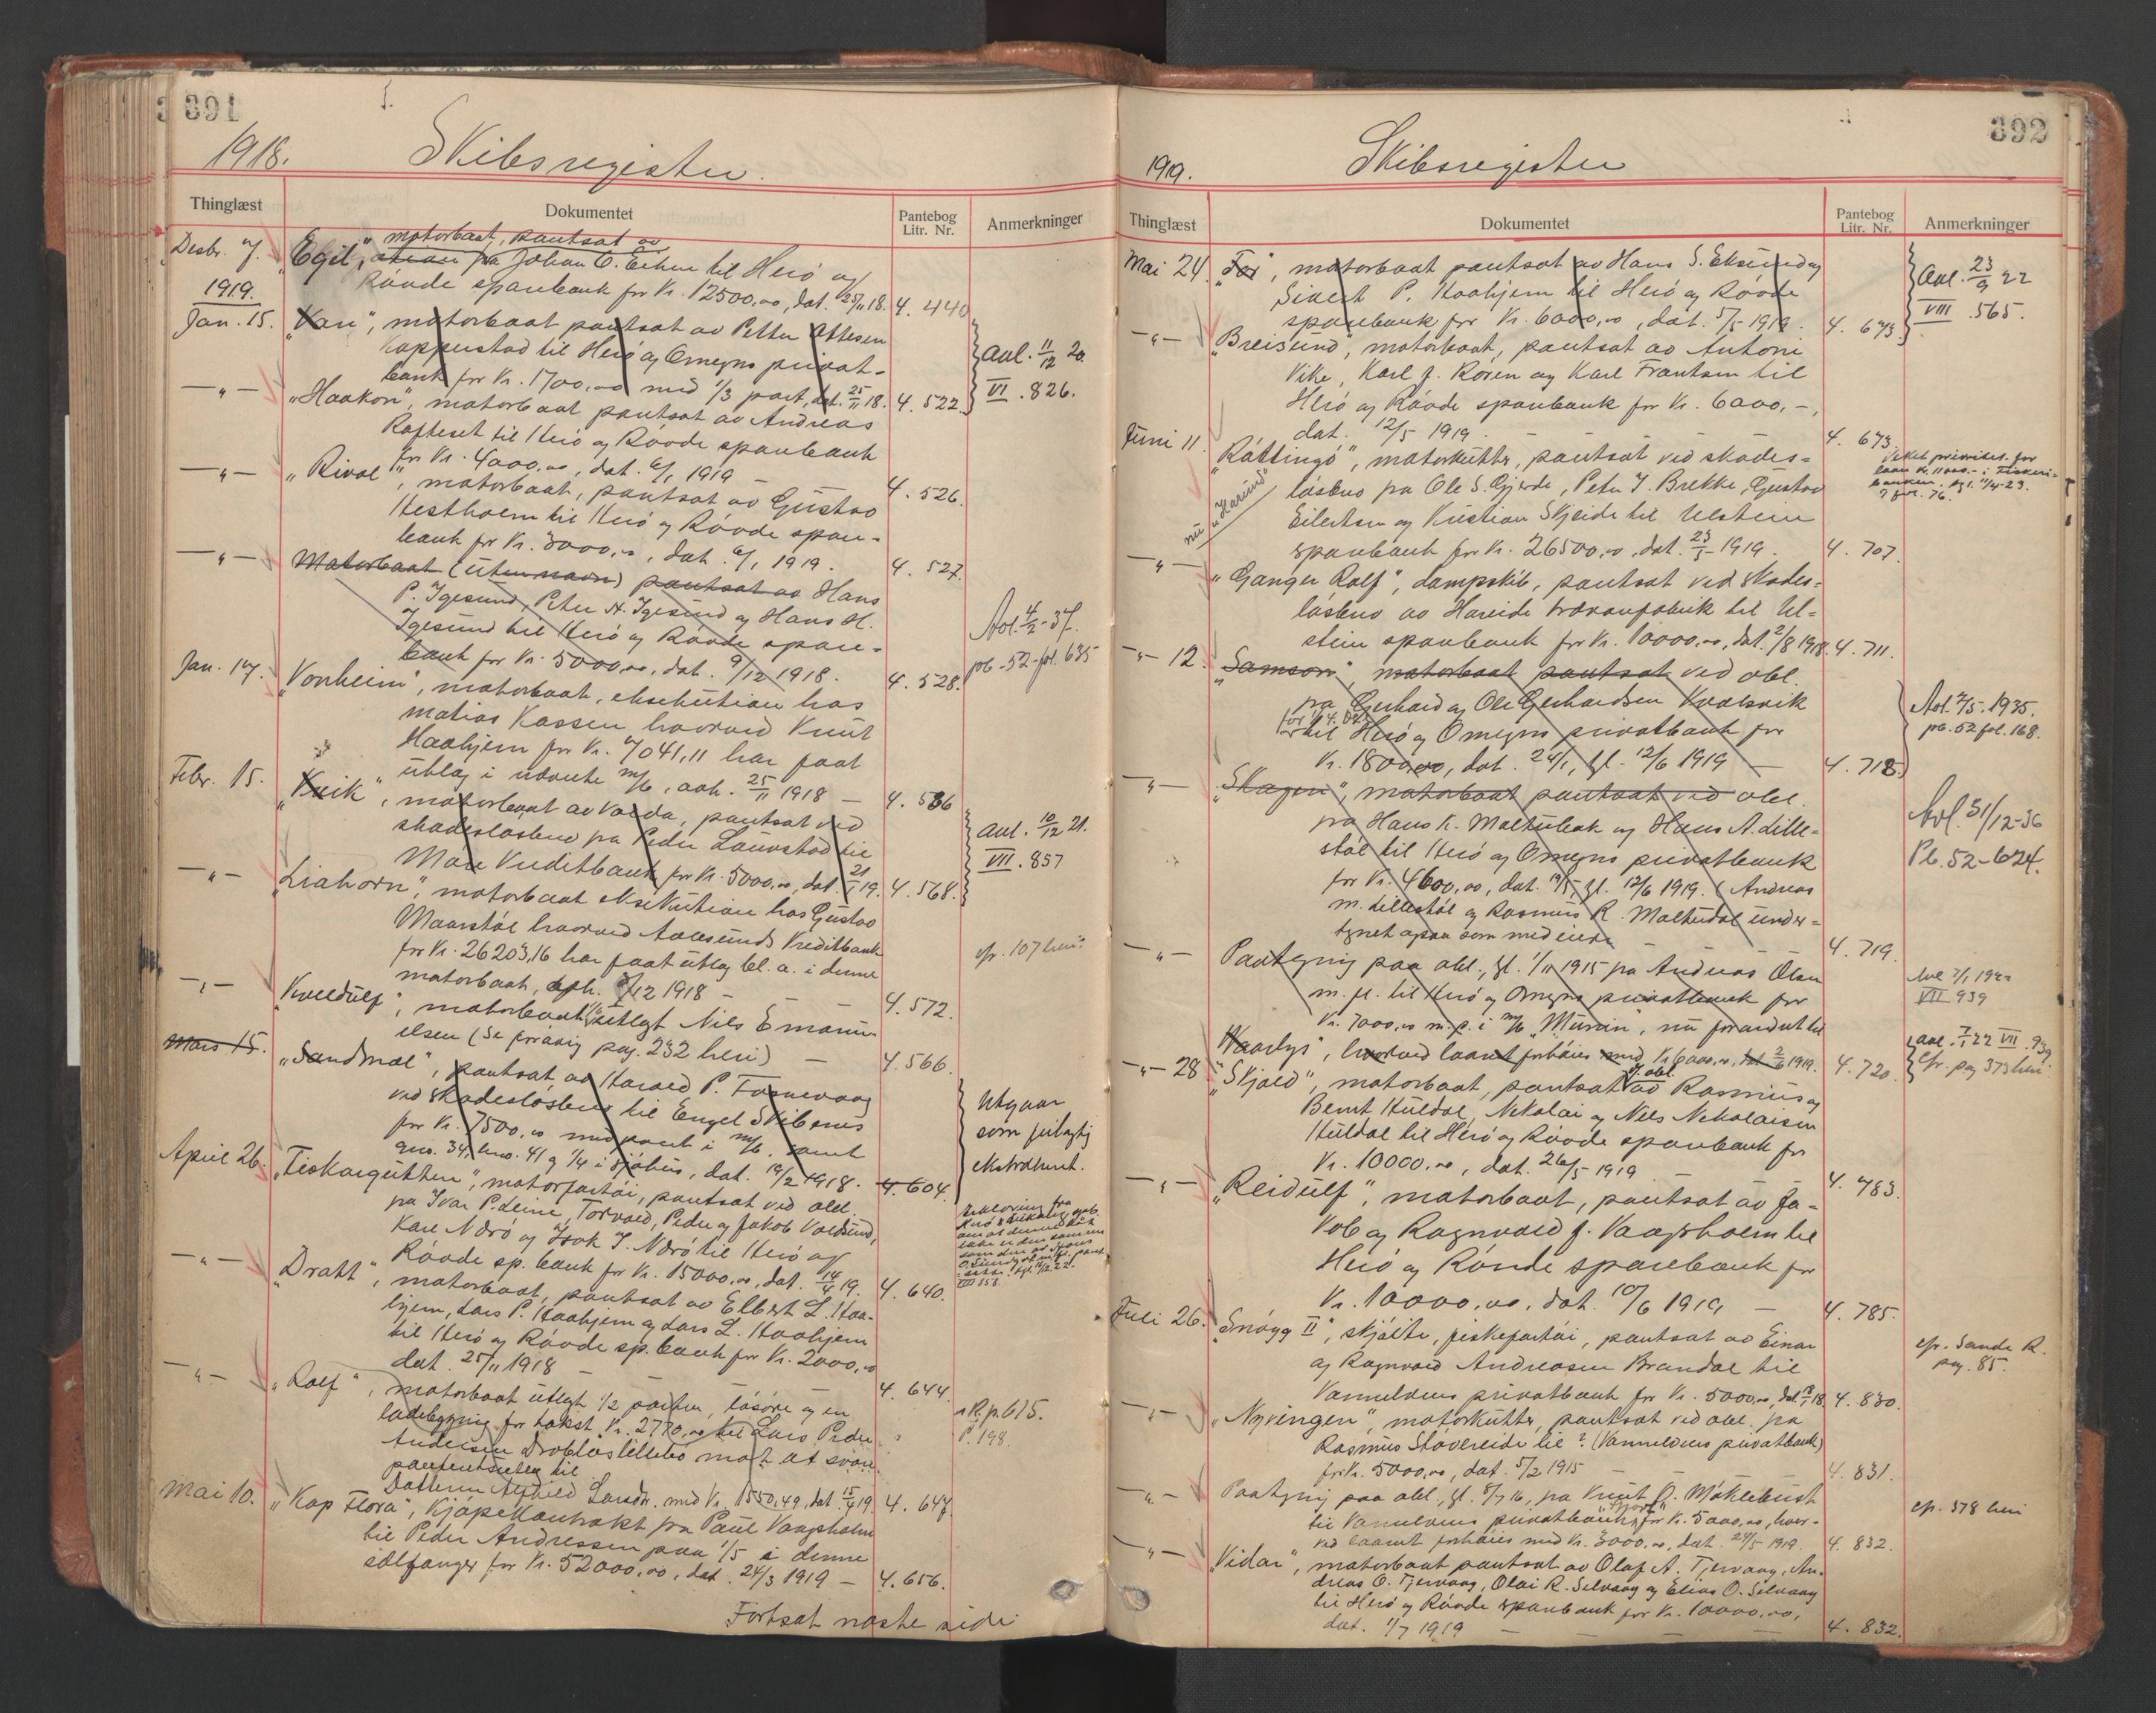 391
1918.
Skibsregister.
Thinglæst
Dokumentet
Pantebog
Litr. Nr.
Anmerkninger
Desbr. 7.
motorbaat, pantsat av
"Egil", fra Johan O. Eihen til Herö og
Rövde sparebank for Kr. 12500,00, dat. 25/11 18. 4. 440
1919.
Jan. 15.
"Vari", motorbaat pantsat av Petter Ottesen
Kopperstad til Herö og Omegns privat-
bank for Kr. 1700,00 med 1/3 part, dat. 25/11 18. 4. 522.
Avl. 11/12 20.
VI. 826.
-"- "Haakon", motorbaat pantsat av Andreas
Rafteset til Herö og Rövde sparebank
for Kr. 4000,00, dat. 6/1 1919 4. 526.
-"- "Rival", motorbaat, pantsat av Gustav
Hestholm til Herö og Rövde spare-
bank for Kr. 3000,00, dat. 6/1 1919. 4. 527.
-"- Motorbaat (uten navn) pantsat av Hans
P. Igesund, Peter H. Igesund og Hans H.
Igesund til Herö og Rövde spare-
bank for Kr. 5000,00, dat. 9/12 1918. 4. 528.
Avl. 4/2-37.
pb-52-fol. 635
Jan. 17. "Vonheim", motorbaat, eksekution hos
Matias Kassen hvorved Knut
Haahjem for Kr. 7041,11 har faat
utlæg i nævnte m/b, avh. 25/11 1918 — 4. 536
Febr. 15. "Kvik", motorbaat av Volda, pantsat ved
skadeslösbrev fra Peder Lauvstad til
Möre Kreditbank for Kr. 5000,00, dat. 21/1 19. 4. 568.
Avl. 10/12 21.
VII. 857
-"- "Liahorn", motorbaat eksekution hos Gustav
Maarstöl hvorved Aalesunds Kreditbank
for Kr. 26203,16 har faat utlæg bl. a. i denne
motorbaat, avh. 12 1918 — 4. 572.
cfr. 107 heri
-"- "Kveldulf", motorbaat utlagt Nils Emanu-
elsen (Se forövrig pag. 232 heri) — 4. 566.
Mars 15. "Sandmöl", pantsat av Harald P.
ved skadeslösbrev til Engel Skibenes
for Kr. 7500,00 med pant i m/b. samt
gno. 34, bno. 41 og 1/4 i sjöhus, dat. 19/2 1918. 4. 604.
Utgaar
som feilagtig
ekstrahert.
April 26. "Fiskargutten", motorfartöi, pantsat ved obl.
fra Ivar P. Leine, Torvald, Peder og Jakob Voldsund,
Karl Nærö og Isak J. Nærö til Herö og
Rövde sp. bank for Kr. 15000,00, dat. 14/4 19. 4. 640.
Erklæring fra
VII 858.
-"- "Drått", motorbaat, pantsat av Elbert L. Haa-
hjem, Lars P. Haahjem og Lars L. Haahjem
til Herö og Rövde sp. bank for Kr. 2000,00
dat. 25/11 1918 — 4. 644.
-"- "Rolf", motorbaat utlagt 1/2 parten, lösöre og en
ladebygning for takst Kr. 2770,00 til Lars Peder
Andersen Dröblöslillebö mot at svare
panteutsteder til
Datteren Larsdr. med Kr. 1550,49, dat. 15/4 19. 4. 647.
R. p. 615.
P. 198.
Mai 10. "Kap Flora", Kjöpekontrakt fra Paul Vaagsholm
til Peder Andressen paa 1/5 i denne
sælfanger for Kr. 52000,00, dat. 24/3 1919 — 4. 656.
Fortsat næste side
392
1919.
Skibsregister
Thinglæst
Dokumentet
Pantebog
Litr. Nr.
Anmerkninger
Mai 24. , motorbaat pantsat av Hans S. Eksund og
Sivert P. Haahjem til Herö og Rövde
sparebank for Kr. 6000,00, dat. 5/5 1919. 4. 673.
Avl. 23/9 22
VIII. 565.
-"- "Breisund", motorbaat, pantsat av Antoni
Vike, Karl J. Koren og Karl Frantsen til
Herö og Rövde sparebank for Kr. 6000,-,
dat. 12/5 1919. 4. 673.
Juni 11. "Råttingö", motorkutter, pantsat ved skades-
lösbrev fra Ole S. Gjerde, Peter J. Brekke, Gustav
Eilertsen og Kristian Skjeide til Ulstein
sparebank for Kr. 26500,00, dat. 23/5 1919. 4. 707.
nu "Harund"
Veket prioritet for
laan kr. 11000.- i Fiskeri-
banken. tgl. 11/4-23.
fol. 76.
-"- "Ganger Rolf", dampskib, pantsat ved skades-
lösbrev av Hareide trævarefabrik til Ul-
stein sparebank for Kr. 10000,00, dat. 2/8 1918. 4. 711.
-"- 12. "Samson", motorbaat pantsat ved obl.
fra Gerhard og Ole Gerhardsen Kvalsvik
til Herö og Omegns privatbank for
Kr. 1800,00, dat. 24/1, tgl. 12/6 1919 — 4. 718.
Avl. 2/5.1935.
pb. 52 fol. 168.
-"- "Skagen", motorbaat pantsat ved obl.
fra Hans K. Moltubak og Hans A. Lille-
stöl til Herö og Omegns privatbank
for Kr. 4600,00, dat. 19/5, tgl. 12/6 1919. (Andreas
M. Lillestöl og Rasmus R. Moltudal under-
tegnet ogsaa som medeiere 4. 719.
Avl. 31/12-36
Pb. 52-624.
-"- Paategning paa obl., tgl. 1/11 1915 fra Andreas Olsen
m. fl. til Herö og Omegns privatbank for
Kr. 7000,00 m. p. i m/b "Munin", nu forandret til
"Vaarlys", hvorved laanet forhöies med Kr. 6000,00, dat. 2/6 1919. 4. 720.
Avl 7/1 1922
VII 939
avl. 7/1 22 VII. 939
cfr. pag 373 heri.
-"- 28 "Skjold", motorbaat, pantsat ved obl. av Rasmus og
Bernt Huldal, Nikolai og Nils Nikolaisen
Huldal til Herö og Rövde sparebank for
Kr. 10000,00, dat. 26/5 1919 — 4. 783.
-"- "Reidulf", motorbaat, pantsat av Ja-
kob og Ragnvald J. Vaagsholm til
Herö og Rövde sparebank for
Kr. 10000,00, dat. 10/6 1919 — 4. 785.
Juli 26. "Snögg II", sköite, fiskefartöi, pantsat av Einar
og Ragnvald Andreasen Brandal til
Vannelvens privatbank for Kr. 5000,00, 18. 4. 830.
cfr. Sande R.
pag. 85.
-"- "Nyvingen", motorkutter, pantsat ved obl. fra
Rasmus Stövereide til ? (Vannelvens privatbank)
for Kr. 5000,00, dat. 5/2 1915 — 4. 831.
-"- Paategning paa obl., tgl. 5/7 16, fra Knut O. Möklebust
til Vannelvens privatbank, for Kr. 5000,00, hvor-
ved laanet forhöies med Kr. 3000,00, dat. 24/5 1919. 4. 832.
cfr. 378 heri
-"- "Vidar", motorbaat pantsat av Olaf A. Tjervaag, An-
dreas O. Tjervaag, Olai R. Selvaag og Elias O. Selvaag
til Herö og Rövde sparebank for Kr. 10000,00,
dat. 1/7 1919 — 4. 832.